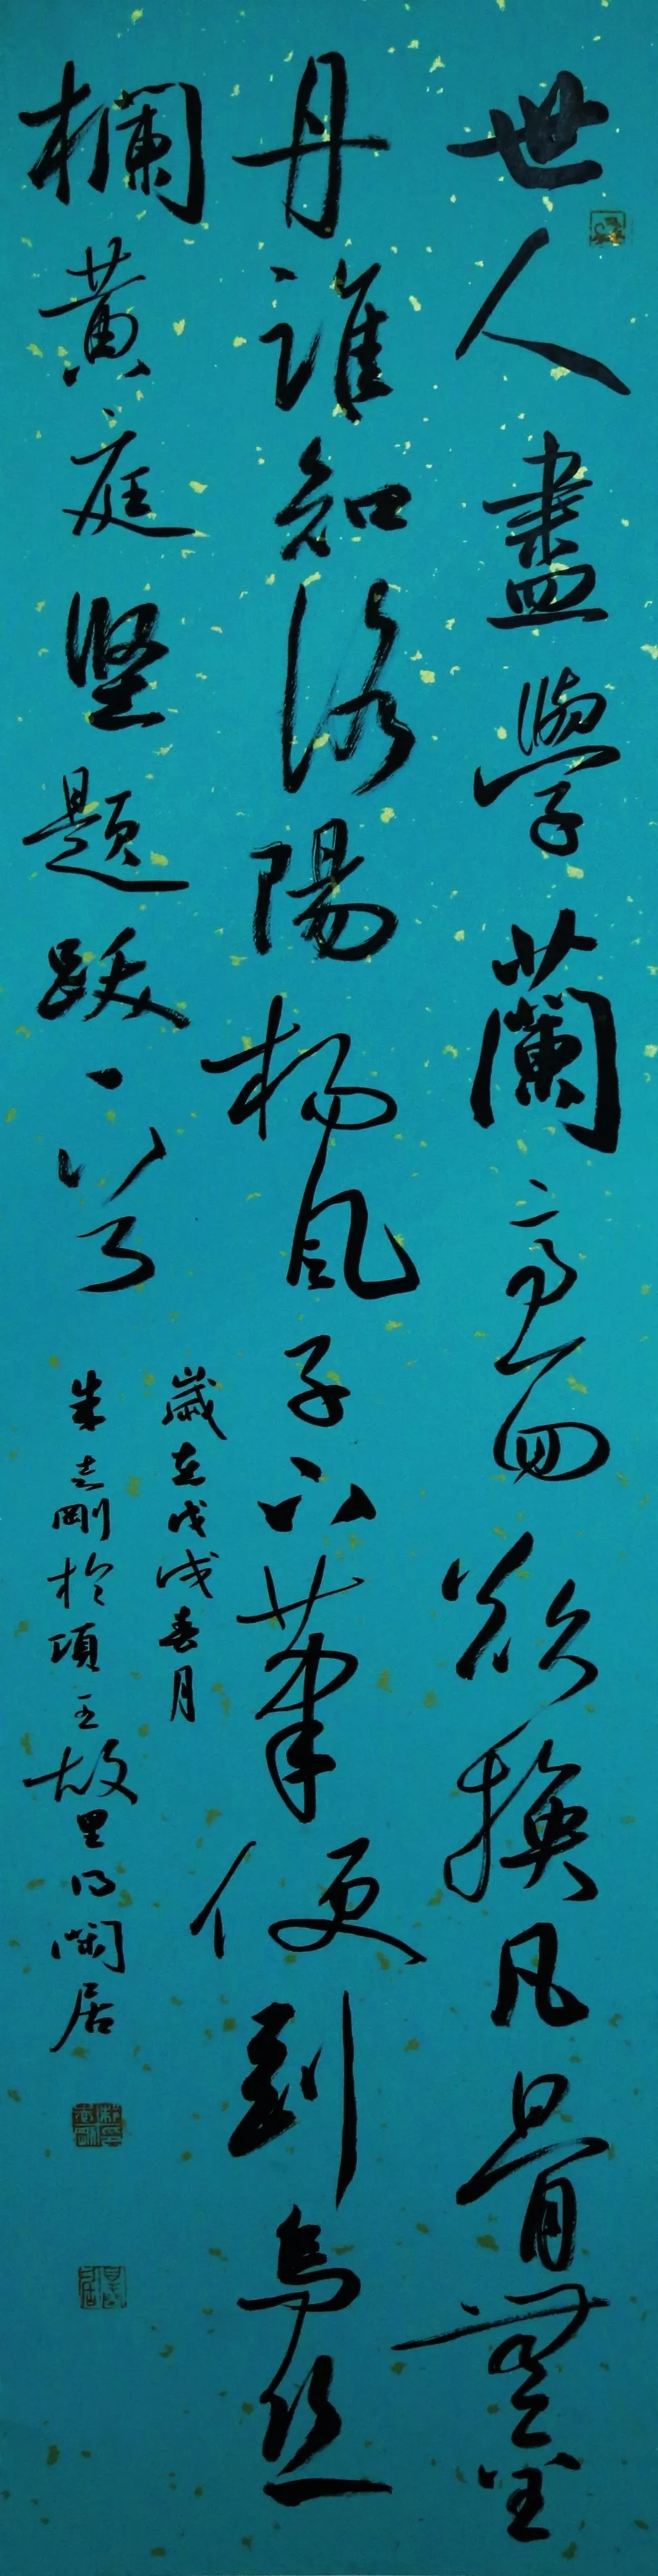 世人盡學蘭亭面欲換凡骨無金
丹誰知洛陽楊風子下筆便到烏絲
欄黃庭堅題跋一首
歲在戊戌春月
朱志剛於項王故里得閑居